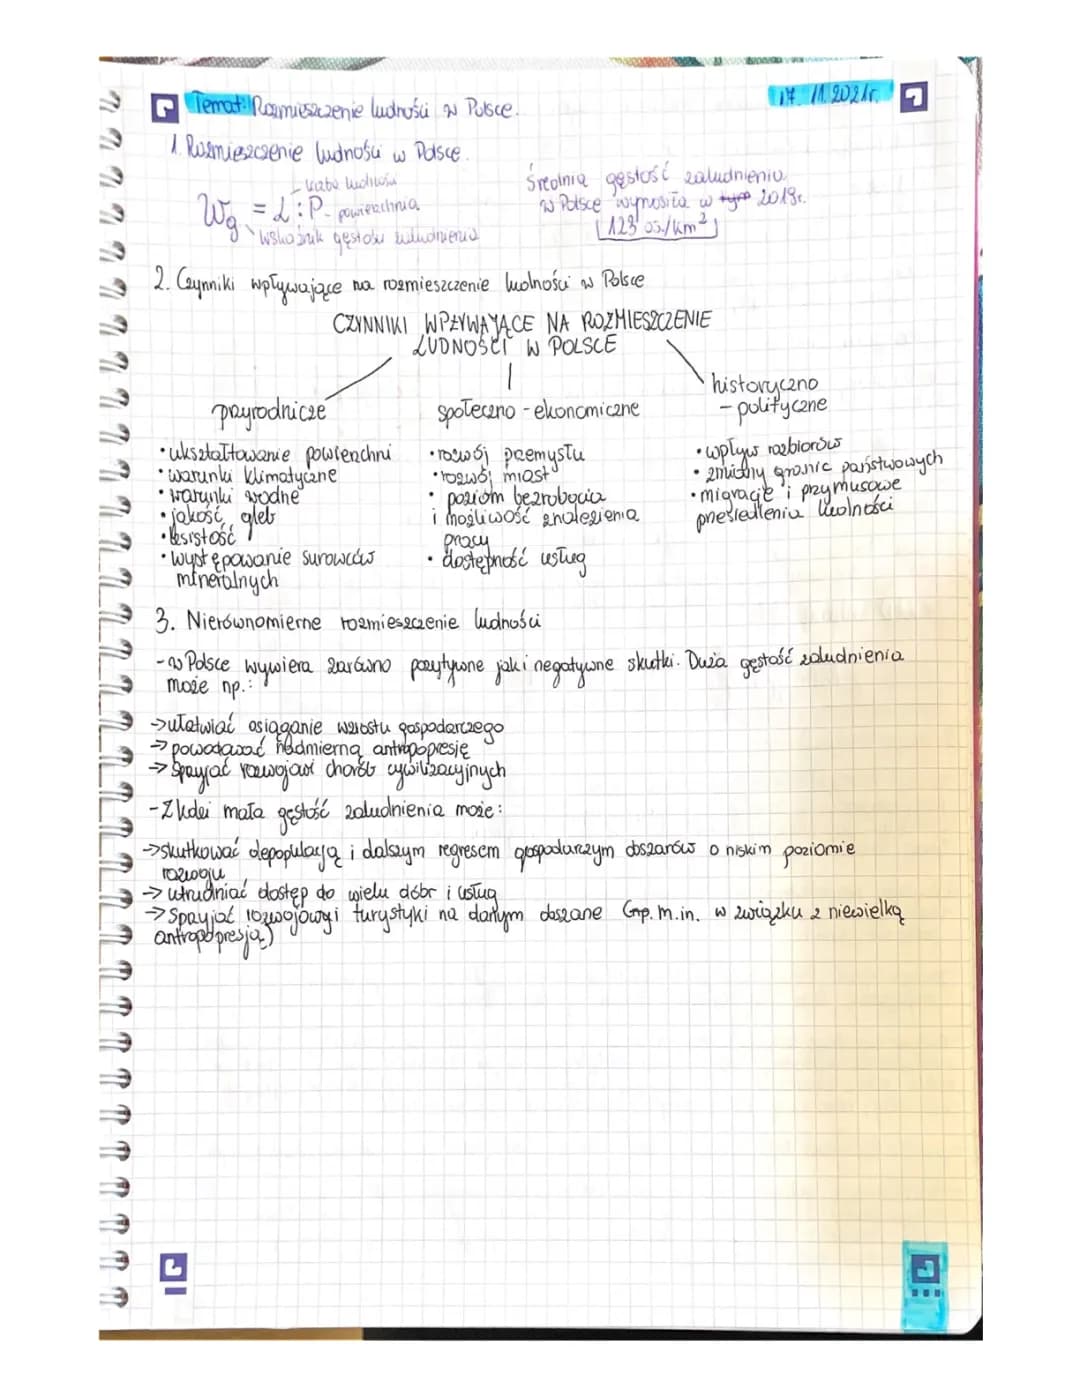 Temat: Rozmieszczenie ludności w Polsce.
17. 11. 2021r.
1. Rozmieszczenie ludności w Polsce.
liczba ludności
Wg = L : P - powierzchnia
wskaźnik gęstości zaludnienia
Średnia gęstość zaludnienia
w Polsce wynosiła w 2018r.
123 os./km²
2. Czynniki wpływające na rozmieszczenie ludności w Polsce
CZYNNIKI WPŁYWAJĄCE NA ROZMIESZCZENIE
LUDNOŚCI W POLSCE
przyrodnicze
• ukształtowanie powierzchni
• warunki klimatyczne
• warunki wodne
• jakość gleb
• lesistość
• występowanie surowców
mineralnych
społeczno - ekonomiczne
• rozwój przemysłu
• rozwój miast
• poziom bezrobocia
i możliwość znalezienia
pracy
• dostępność usług
historyczno
- polityczne
• wpływ rozbiorów
• zmiany granic państwowych
• migracje i przymusowe
przesiedlenia ludności
3. Nierównomierne rozmieszczenie ludności
- w Polsce wywiera zarówno pozytywne jak i negatywne skutki. Duża gęstość zaludnienia
może np.:
→ ułatwiać osiąganie wzrostu gospodarczego
→ powodować nadmierną antropopresję
→ sprzyjać rozwojowi chorób cywilizacyjnych
- Z kolei mała gęstość zaludnienia może:
→ skutkować depopulacją i dalszym regresem gospodarczym obszarów o niskim poziomie
rozwoju
→ utrudniać dostęp do wielu dóbr i usług
→ sprzyjać rozwojowi turystyki na danym obszarze (np. m.in. w związku z niewielką
antropopresją)